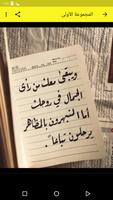 المجموعة الأولى
ويبقى معك من رأى
الجمال في روحك
أما المنبهرون بالمظاهر
يرحلون تباعاً.